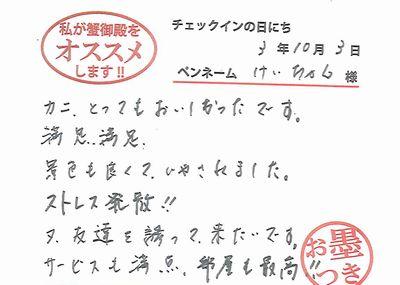 私が蟹御殿を
オススメ
します!!
チェックインの日にち
3年10月3日
ペンネーム けいちゃん 様
カニ、とってもおいしかったです。
満足、満足、
景色も良くて、いやされました。
ストレス発散!!
又、友達を誘って、来たいです。
サービスも満点、部屋も最高!!
お墨つき